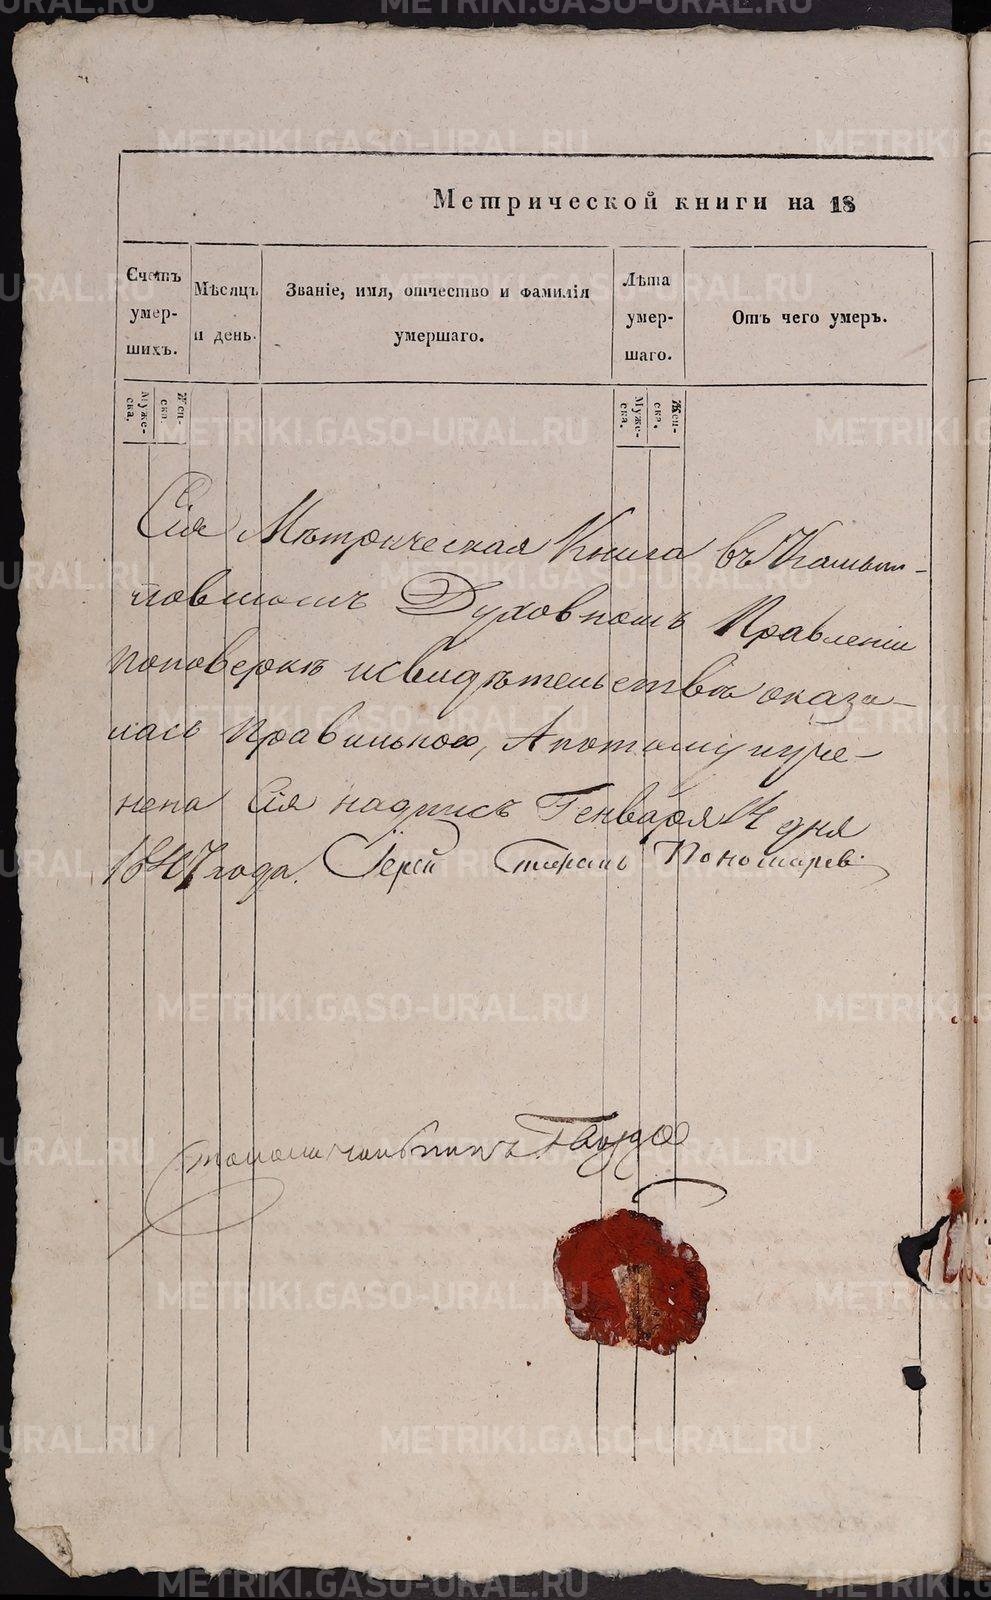 Метрической книги на 18
Счетъ умер- шихъ.
Мѣсяцъ и день.
Званіе, имя, отчество и фамилія умершаго.
Лѣта умер- шаго.
Отъ чего умеръ.
Муже- ска.
Жен- ска.
Муже- ска.
Жен- ска.
Сія Мѣтрическая Книга въ Камыш-
ловскомъ Духовномъ Правленіи
поповеркѣ исвидѣтельствѣ оказа-
лась Правильною, Апотому иучи-
нена Сія надпись Генваря 14 дня
1847 года. Іерей Стефанъ Пономарев
Столоначальникъ
METRIKI.GASO-URAL.RU